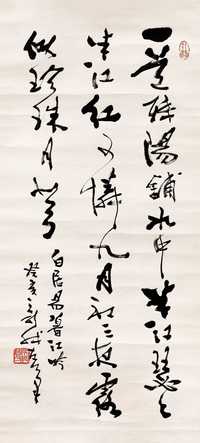 一道殘陽鋪水中半江瑟々
半江红可憐九月初三夜露
似珍珠月似弓
白居易暮江吟
癸亥